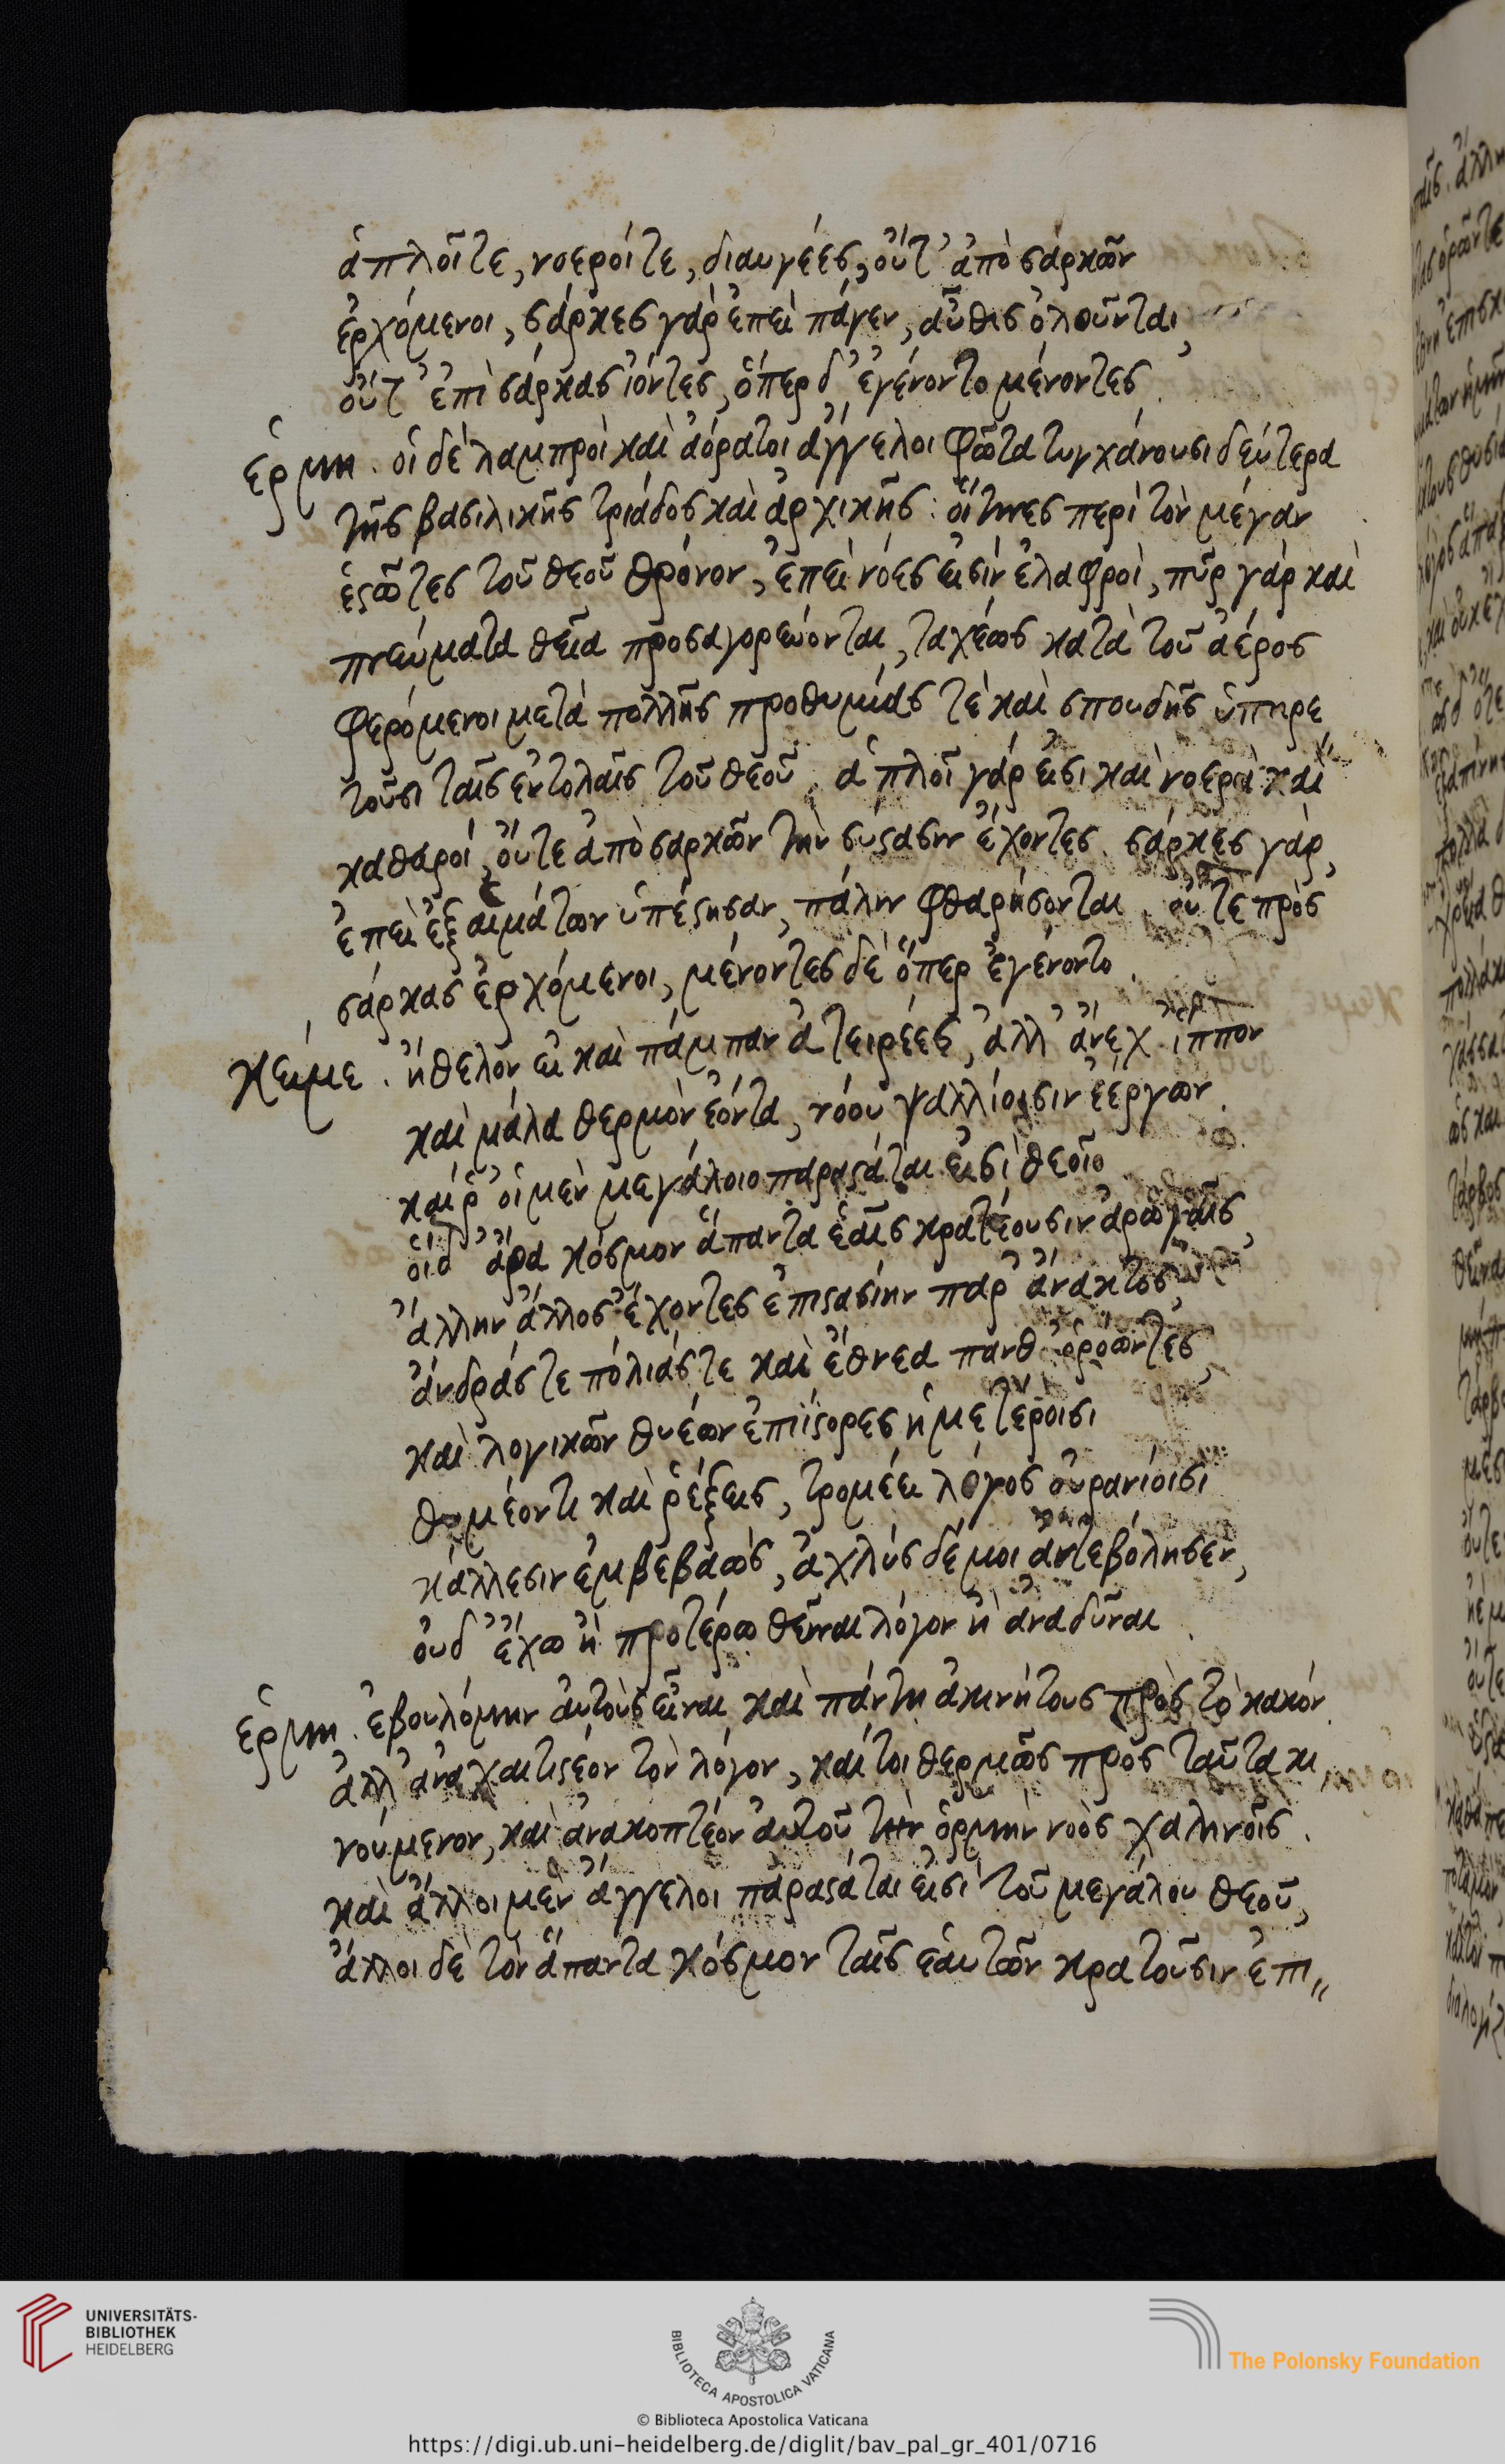 ἁπλοῖτε, νοεροίτε, διαυγέες, οὔτ' ἀπὸ σαρκῶν
ἐρχόμενοι, σάρκες γὰρ ἐπεὶ πάγεν, αὖθις ὀλοῦνται,
οὔτ' ἐπὶ σάρκας ἰόντες, ὅπερ δ' ἐγένοντο μένοντες.
ἑρμη. οἱ δὲ λαμπροὶ καὶ ἀόρατοι ἄγγελοι φῶτα τυγχάνουσι δεύτερα
τῆς βασιλικῆς τριάδος καὶ ἀρχικῆς· οἵτινες περὶ τὸν μέγαν
ἑστῶτες τοῦ θεοῦ θρόνον, ἐπεὶ νόες εἰσὶν ἐλαφροὶ, πῦρ γάρ καὶ
πνεύματα θεῖα προσαγορεύονται, ταχέως κατὰ τοῦ ἀέρος
φερόμενοι μετὰ πολλῆς προθυμίας τὲ καὶ σπουδῆς ὑπηρε
τοῦσι ταῖς ἐντολαῖς τοῦ θεοῦ. ἁπλοῖ γάρ εἰσι καὶ νοεροὶ καὶ
καθαροί, οὔτε ἀπὸ σαρκῶν τὴν σύστασιν ἔχοντες. σάρκες γὰρ,
ἐπεὶ ἐξ αἱμάτων ὑπέστησαν, πάλιν φθαρήσονται. οὔτε πρὸς
σάρκας ἐρχόμενοι, μένοντες δὲ ὅπερ ἐγένοντο.
κείμε. ἤθελον εἰ καὶ πάμπαν ἀτειρέες, ἀλλ' ἄνεχ' ἵππον
καὶ μάλα θερμὸν ἐόντα, νόου ψαλλίοισιν ἐέργων.
καί ῥ' οἱ μὲν μεγάλοιο παραστάται εἰσὶ θεοῖο
οἱ δ' ἄρα κόσμον ἅπαντα ἑαῖς κρατέουσιν ἀρωγαῖς,
ἄλλην ἄλλος ἔχοντες ἐπιστασίην παρ' ἄνακτος,
ἄνδράς τε πόλιάς τε καὶ ἔθνεα πάνθ' ὁρόωντες,
καὶ λογικῶν θυέων ἐπιίστορες ἡμετέροισι
θυμέοντι καὶ ῥέξεις, τρομέει λόγος οὐρανίοισι
κάλλεσιν ἐμβεβαὼς, ἀχλὺς δέ μοι ἀντεβόλησεν,
οὐδ' ἔχω ἢ προτέρω θεῖναι λόγον ἢ ἀναδῦναι.
ἑρμη. ἐβουλόμην αὐτοὺς εἶναι καὶ πάντη ἀκινήτους πρὸς τὸ κακόν.
ἀλλ' ἀναχαιτιστέον τὸν λόγον, καίτοι θερμῶς πρὸς ταῦτα κι
νούμενον, καὶ ἀνακοπτέον αὐτοῦ τὴν ὁρμὴν νοὸς χαλινοῖς.
καὶ ἄλλοι μὲν ἄγγελοι παραστάται εἰσὶ τοῦ μεγάλου θεοῦ,
ἄλλοι δὲ τὸν ἅπαντα κόσμον ταῖς ἑαυτῶν κρατοῦσιν ἐπι,,
UNIVERSITÄTS-
BIBLIOTHEK
HEIDELBERG
BIBLIOTECA APOSTOLICA VATICANA
The Polonsky Foundation
© Biblioteca Apostolica Vaticana
https://digi.ub.uni-heidelberg.de/diglit/bav_pal_gr_401/0716